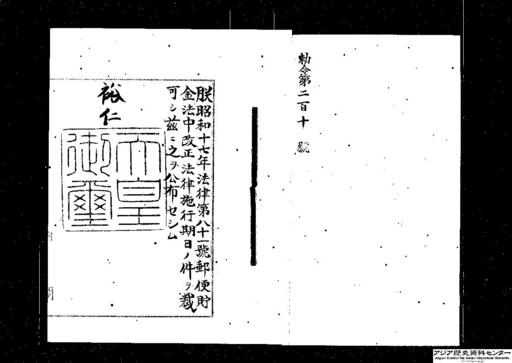 勅令第二百十號
朕昭和十七年法律第八十一號郵便貯
金法中改正法律施行期日ノ件ヲ裁
可シ茲ニ之ヲ公布セシム
裕仁
天皇
御璽
アジア歴史資料センター
Japan Center for Asian Historical Records